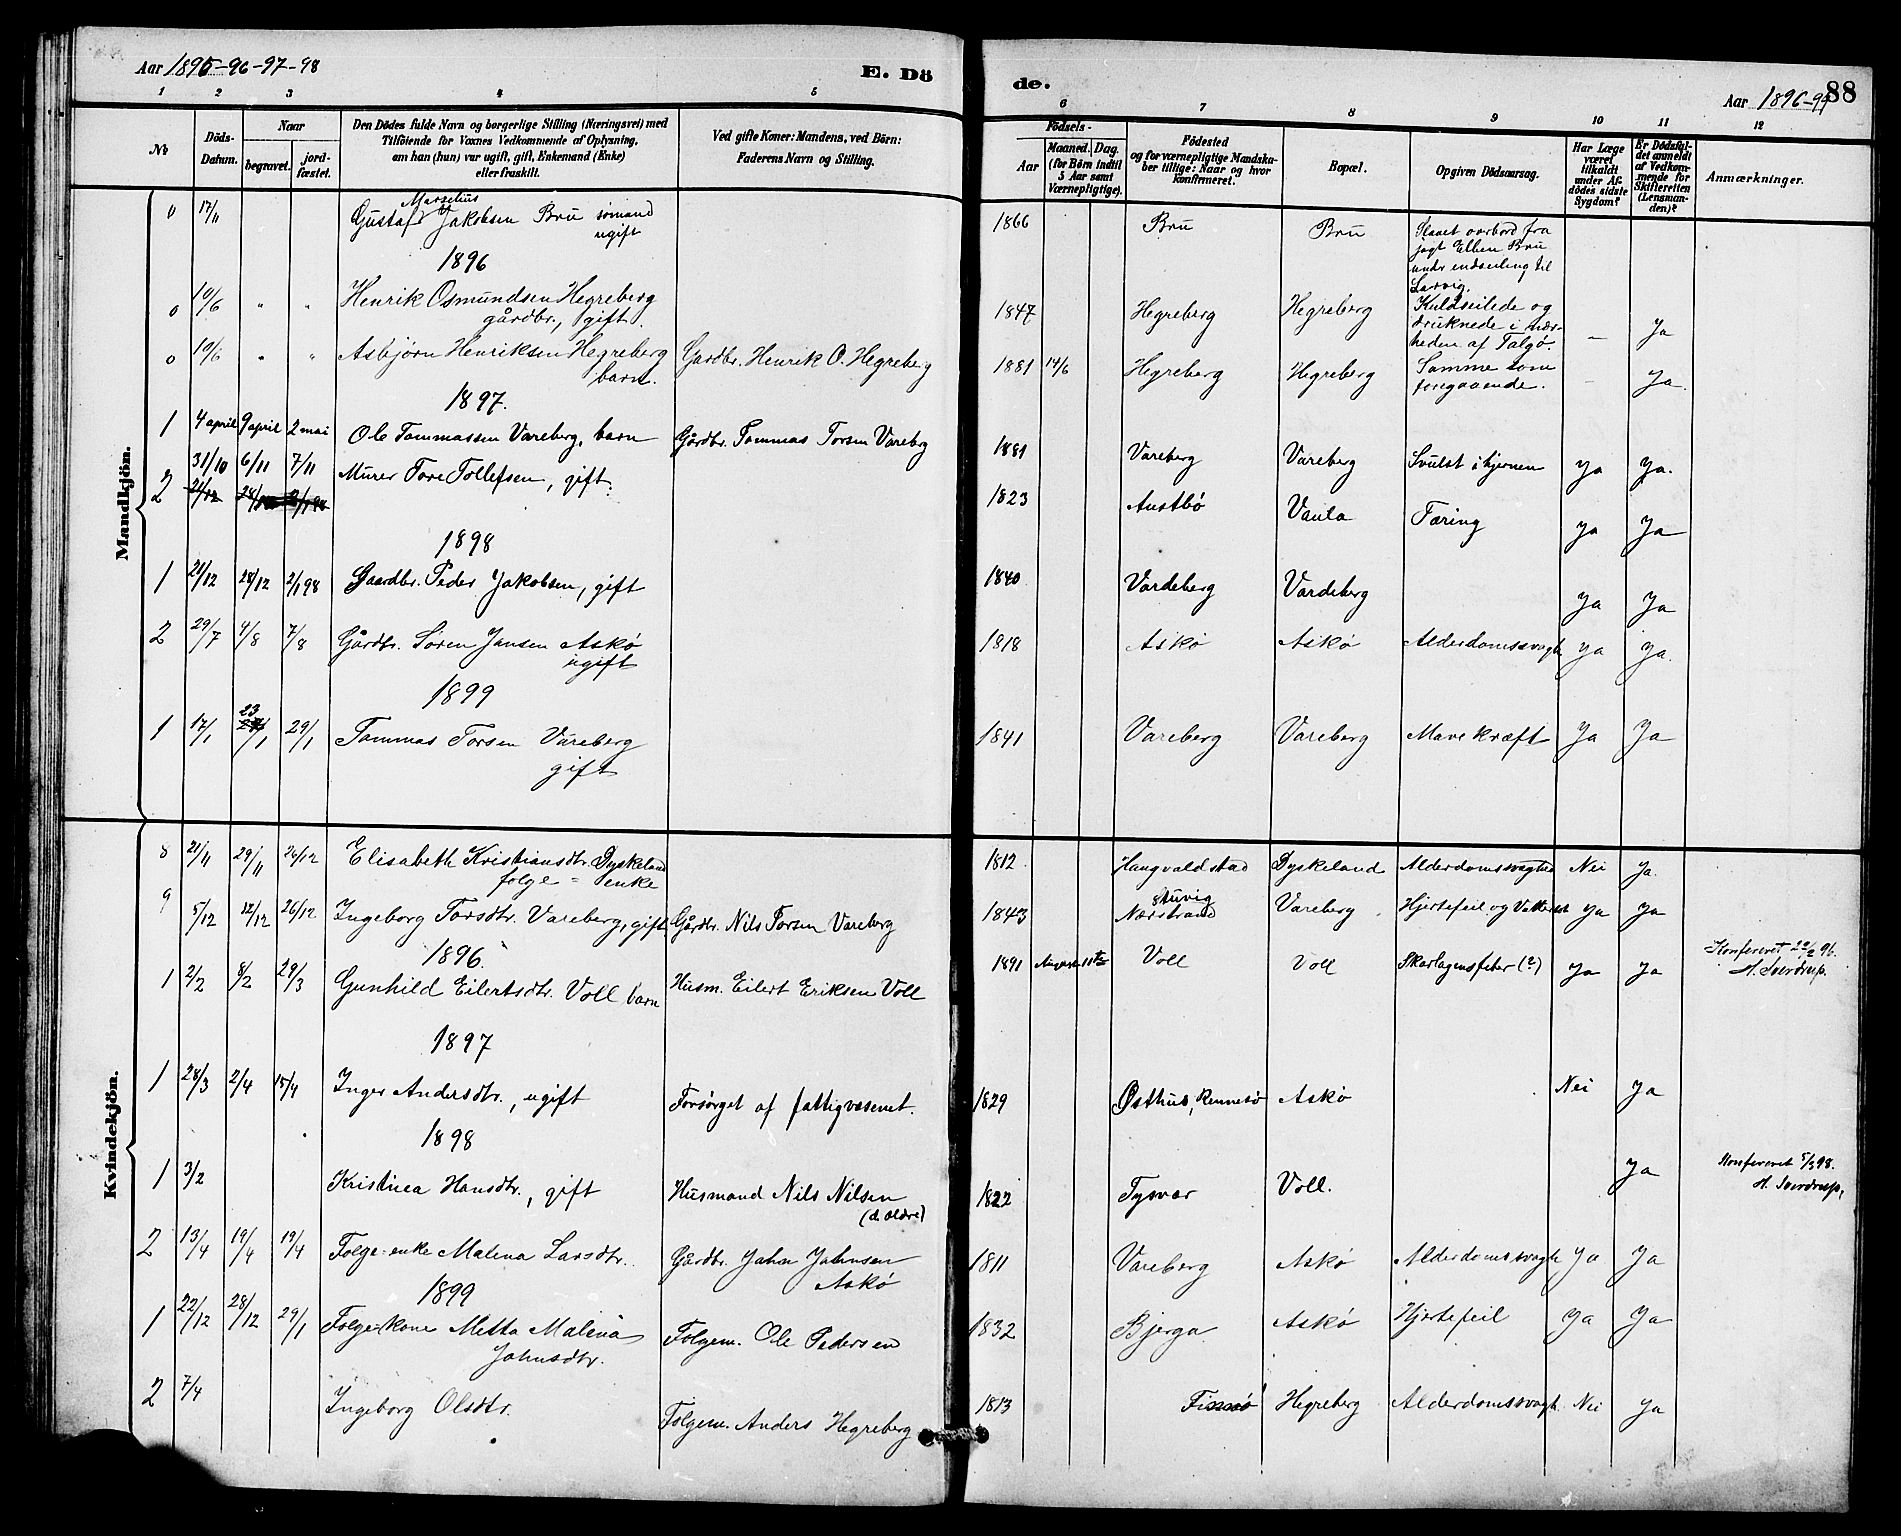 Aar 1895-96-97-98
E. Dö
de.
Aar 1896-99
88
1 2 3 4 5 6 7 8 9 10 11 12
No
Döds-Datum.
Naar
begravet.
jord-fæstet.
Den Dödes fulde Navn og borgerlige Stilling (Næringsvei) med
Tilföiende for Voxnes Vedkommende af Oplysning,
om han (hun) var ugift, gift, Enkemand (Enke)
eller fraskilt.
Ved gifte Koner: Mandens, ved Börn:
Faderens Navn og Stilling.
Födsels-
Aar
Maaned. Dag.
(for Börn indtil
5 Aar samt
Værnepligtige).
Födested
og for værnepligtige Mandska-
ber tillige: Naar og hvor
konfirmeret.
Bopæl.
Opgiven Dödsaarsag.
Har Læge
været
tilkaldt
under Af-
dödes sidste
Sygdom?
Er Dödsfal-
det anmeldt
af Vedkom-
mende for
Skifteretten
(Lensman-
den)?
Anmærkninger.
Mandkjön.
0 17/11 Gustaf Marselius Jakobsen Bru sømand ugift 1866 Bru Bru Slaaet overbord fra
jagt Ellen Bru
under indseiling til
Larvig.
1896
0 10/6 " " Henrik Osmundsen Hegreberg
gårdbr., gift. 1847 Hegreberg Hegreberg Kuldseilede og
druknede i nær-
heden af Talgø. - Ja
0 10/6 " " Asbjørn Henriksen Hegreberg
barn. Gardbr. Henrik O. Hegreberg 1881 14/6 Hegreberg Hegreberg Samme som
foregaaende. - Ja.
1897.
1 4 april 9 april 2 mai Ole Tammassen Vareberg, barn Gårdbr. Tammas Torsen Vareberg 1881 Vareberg Vareberg Svulst i hjernen Ja Ja.
2 31/10 6/11 7/11 Murer Tore Tollefsen, gift. 1823 Austbø Vaula Tæring Ja Ja
21/12
1898
1 21/12 28/12 2/1 98 Gaardbr. Peder Jakobsen, gift 1840 Vardeberg Vardeberg Ja Ja
2 29/7 4/8 7/8 Gårdbr. Søren Jansen Askø
ugift 1818 Askø Askø Alderdomssvagh. Ja Ja.
1899
1 17/1 23/1 29/1 Tammas Torsen Vareberg
gift 1841 Vareberg Vareberg Mavekræft Ja Ja
Kvindekjön.
8 21/11 29/11 26/12 Elisabeth Kristiansdtr. Dyskeland
folge-enke 1812. Haugvaldstad Dyskeland Alderdomssvaghed Nei Ja.
9 5/12 12/12 26/12 Ingeborg Torsdtr. Vareberg, gift Gårdbr. Nils Torsen Vareberg 1843 Stuvig
Nærstrand Vareberg Hjertefeil og Vattersot Ja Ja
1896.
1 2/2 8/2 29/3 Gunhild Eilertsdtr. Voll barn Husm. Eilert Eriksen Voll 1891 August 11te Voll Voll Skarlagensfeber (?) Ja Ja Konfereret 22/2 96.
H. Sverdrup.
1897
1 28/3 2/4 15/4 Inger Andersdtr., ugift Forsørget af fattigvæsenet. 1829 Østhus, Rennesø Askø Nei Ja
1898
1 3/2 Kristina Hansdtr., gift Husmand Nils Nilsen
(d. ældre) 1822 Tysvær Voll. Ja Konfereret 5/3 98.
H. Sverdrup,
2 13/4 19/4 19/4 Folge-enke Malena Larsdtr. Gårdbr. Jahn Jahnsen
Askø 1811 Vareberg Askø Alderdomssvagh Ja Ja
1899
1 22/12 28/12 29/1 Folge-kone Metta Malena
Jahnsdtr. Folgem. Ole Pedersen 1832 Bjerga Askø Hjertefeil Ja Ja
2 7/4 Ingeborg Olsdtr. Folgem. Anders Hegreberg 1813 Finnø Hegreberg Alderdomssvagh. Nei Ja